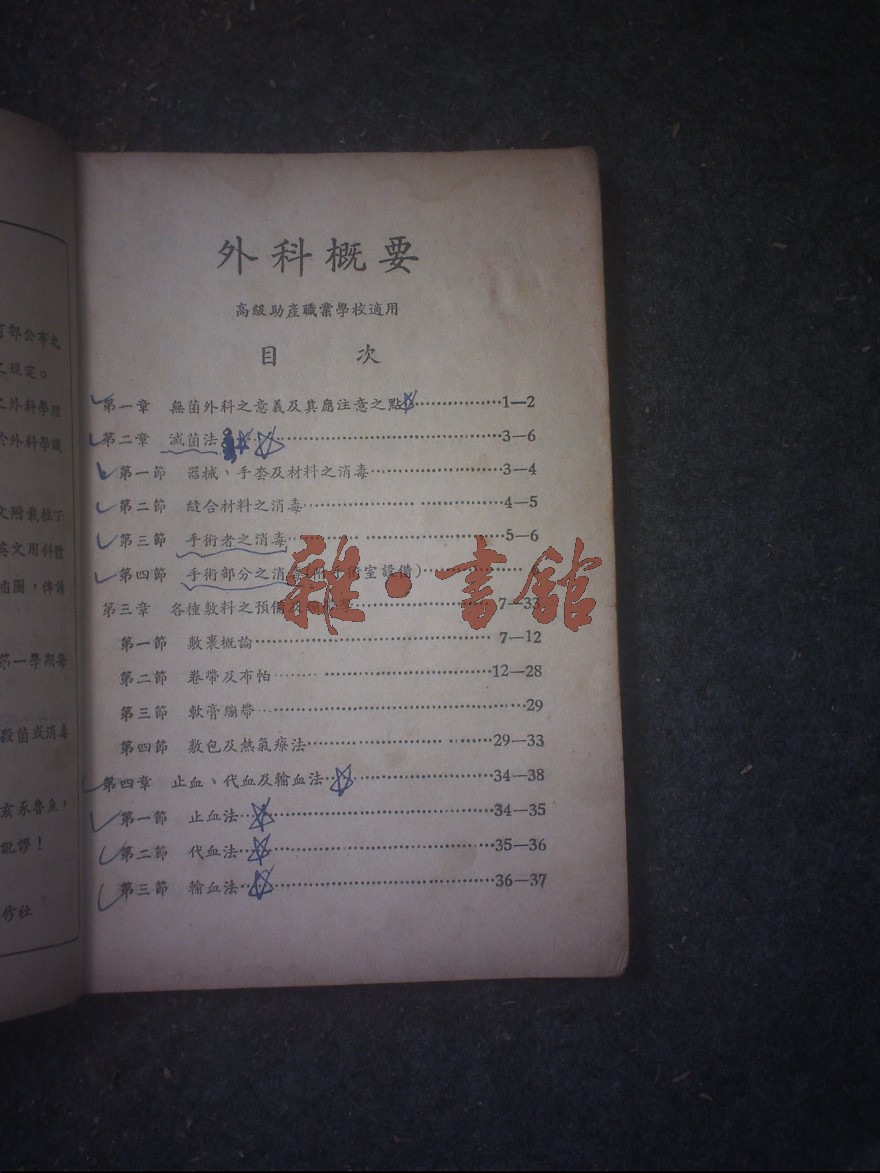 外科概要
高級助產職業學校適用
目 次
第一章 無菌外科之意義及其應注意之點……1—2
第二章 滅菌法……3—6
第一節 器械、手套及材料之消毒……3—4
第二節 縫合材料之消毒……4—5
第三節 手術者之消毒……5—6
第四節 手術部分之消毒(附手術室設備)……
第三章 各種敷料之預備及……7—33
第一節 敷裹概論……7—12
第二節 卷帶及布帕……12—28
第三節 軟膏繃帶……29
第四節 敷包及熱氣療法……29—33
第四章 止血、代血及輸血法……34—38
第一節 止血法……34—35
第二節 代血法……35—36
第三節 輸血法……36—37
雜·書館
部公布之
之規定。
之外科學理
外科學識
文附載拉丁
英文用斜體
插圖，俾清
第一學期每
殺菌或消毒
亥豕魯魚，
訛謬！
修社